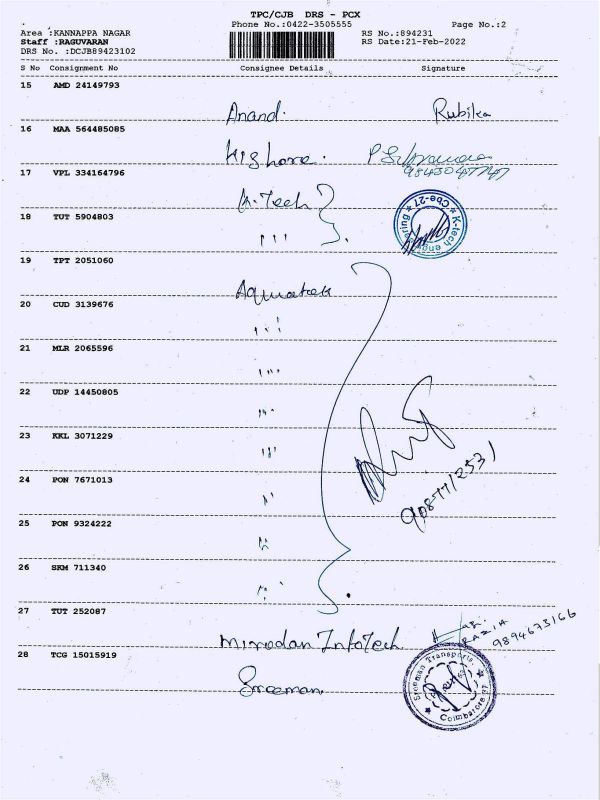 TPC/CJB DRS - PCX
Phone No.:0422-3505555
Page No.:2
Area :KANNAPPA NAGAR
RS No.:894231
Staff :RAGUVARAN
RS Date:21-Feb-2022
DRS No. :DCJB89423102
S No Consignment No Consignee Details Signature
15 AMD 24149793
Anand. Rubika
16 MAA 564485085
Kishore.
9843047747
17 VPL 334164796
K.Tech
K-tech engineering * Cbe-27 *
18 TUT 5904803
" '
19 TPT 2051060
Aquatek
20 CUD 3139676
" '
21 MLR 2065596
" '
22 UDP 14450805
" '
23 KKL 3071229
" '
24 PON 7671013
"
9087712531
25 PON 9324222
"
26 SKM 711340
"
27 TUT 252087
Mirodan InfoTech
RAZIA
9894673166
28 TCG 15015919
Sreeman
Sreeman Transports,
Coimbatore